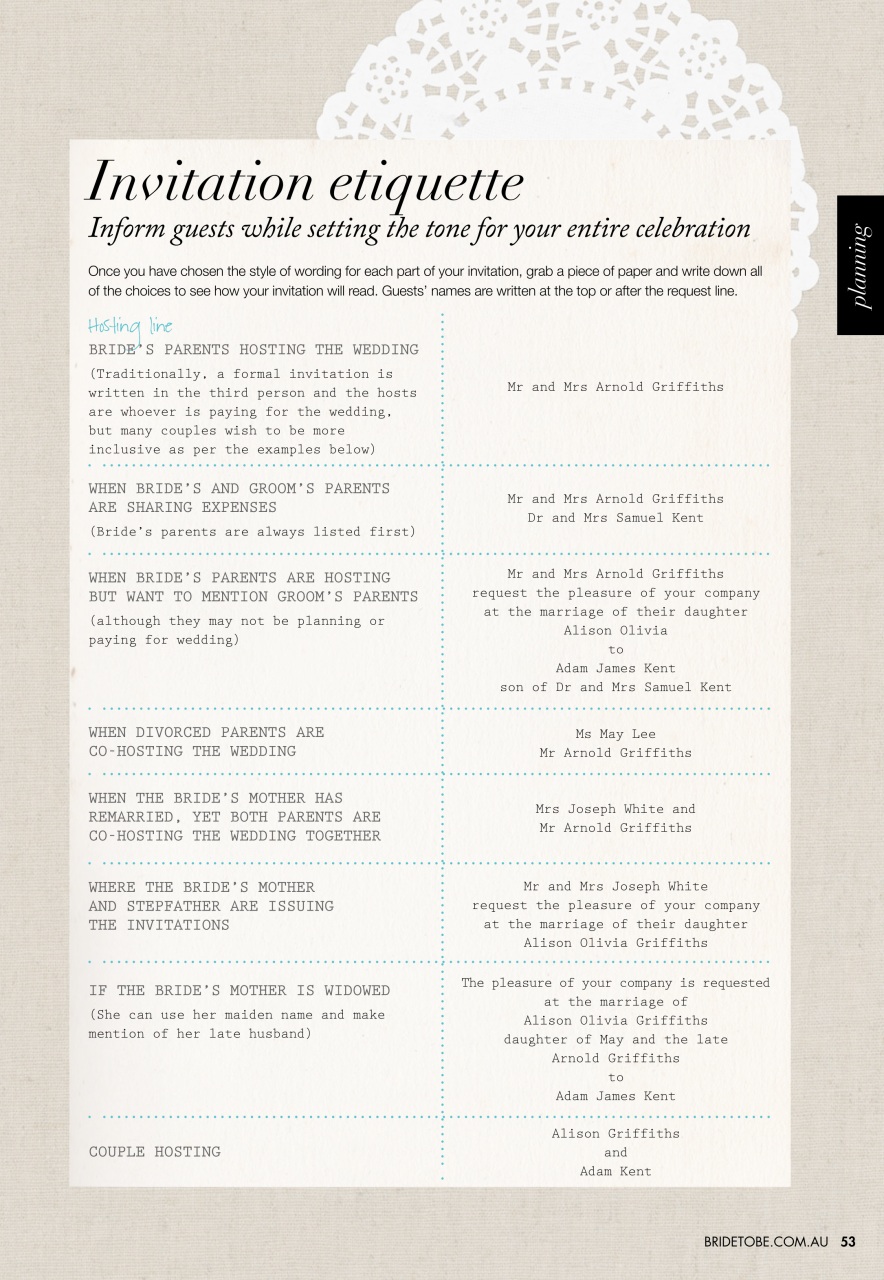 Invitation etiquette
Inform guests while setting the tone for your entire celebration
planning
Once you have chosen the style of wording for each part of your invitation, grab a piece of paper and write down all
of the choices to see how your invitation will read. Guests’ names are written at the top or after the request line.
Hosting line
BRIDE’S PARENTS HOSTING THE WEDDING
(Traditionally, a formal invitation is
written in the third person and the hosts
are whoever is paying for the wedding,
but many couples wish to be more
inclusive as per the examples below)
Mr and Mrs Arnold Griffiths
WHEN BRIDE’S AND GROOM’S PARENTS
ARE SHARING EXPENSES
(Bride’s parents are always listed first)
Mr and Mrs Arnold Griffiths
Dr and Mrs Samuel Kent
WHEN BRIDE’S PARENTS ARE HOSTING
BUT WANT TO MENTION GROOM’S PARENTS
(although they may not be planning or
paying for wedding)
Mr and Mrs Arnold Griffiths
request the pleasure of your company
at the marriage of their daughter
Alison Olivia
to
Adam James Kent
son of Dr and Mrs Samuel Kent
WHEN DIVORCED PARENTS ARE
CO-HOSTING THE WEDDING
Ms May Lee
Mr Arnold Griffiths
WHEN THE BRIDE’S MOTHER HAS
REMARRIED, YET BOTH PARENTS ARE
CO-HOSTING THE WEDDING TOGETHER
Mrs Joseph White and
Mr Arnold Griffiths
WHERE THE BRIDE’S MOTHER
AND STEPFATHER ARE ISSUING
THE INVITATIONS
Mr and Mrs Joseph White
request the pleasure of your company
at the marriage of their daughter
Alison Olivia Griffiths
IF THE BRIDE’S MOTHER IS WIDOWED
(She can use her maiden name and make
mention of her late husband)
The pleasure of your company is requested
at the marriage of
Alison Olivia Griffiths
daughter of May and the late
Arnold Griffiths
to
Adam James Kent
COUPLE HOSTING
Alison Griffiths
and
Adam Kent
BRIDETOBE.COM.AU 53